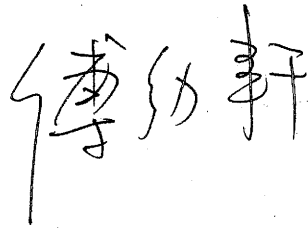 傅幼軒